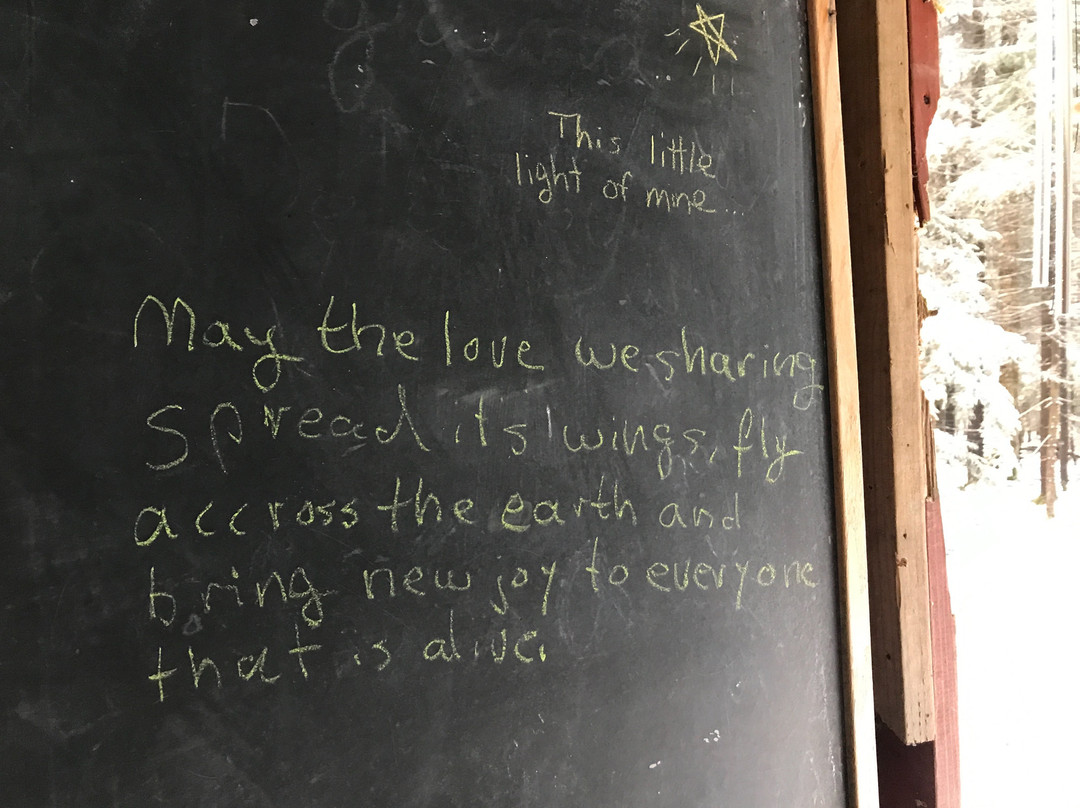 This little
light of mine...
May the love we sharing
spread its wings, fly
accross the earth and
bring new joy to everyone
that is alive.